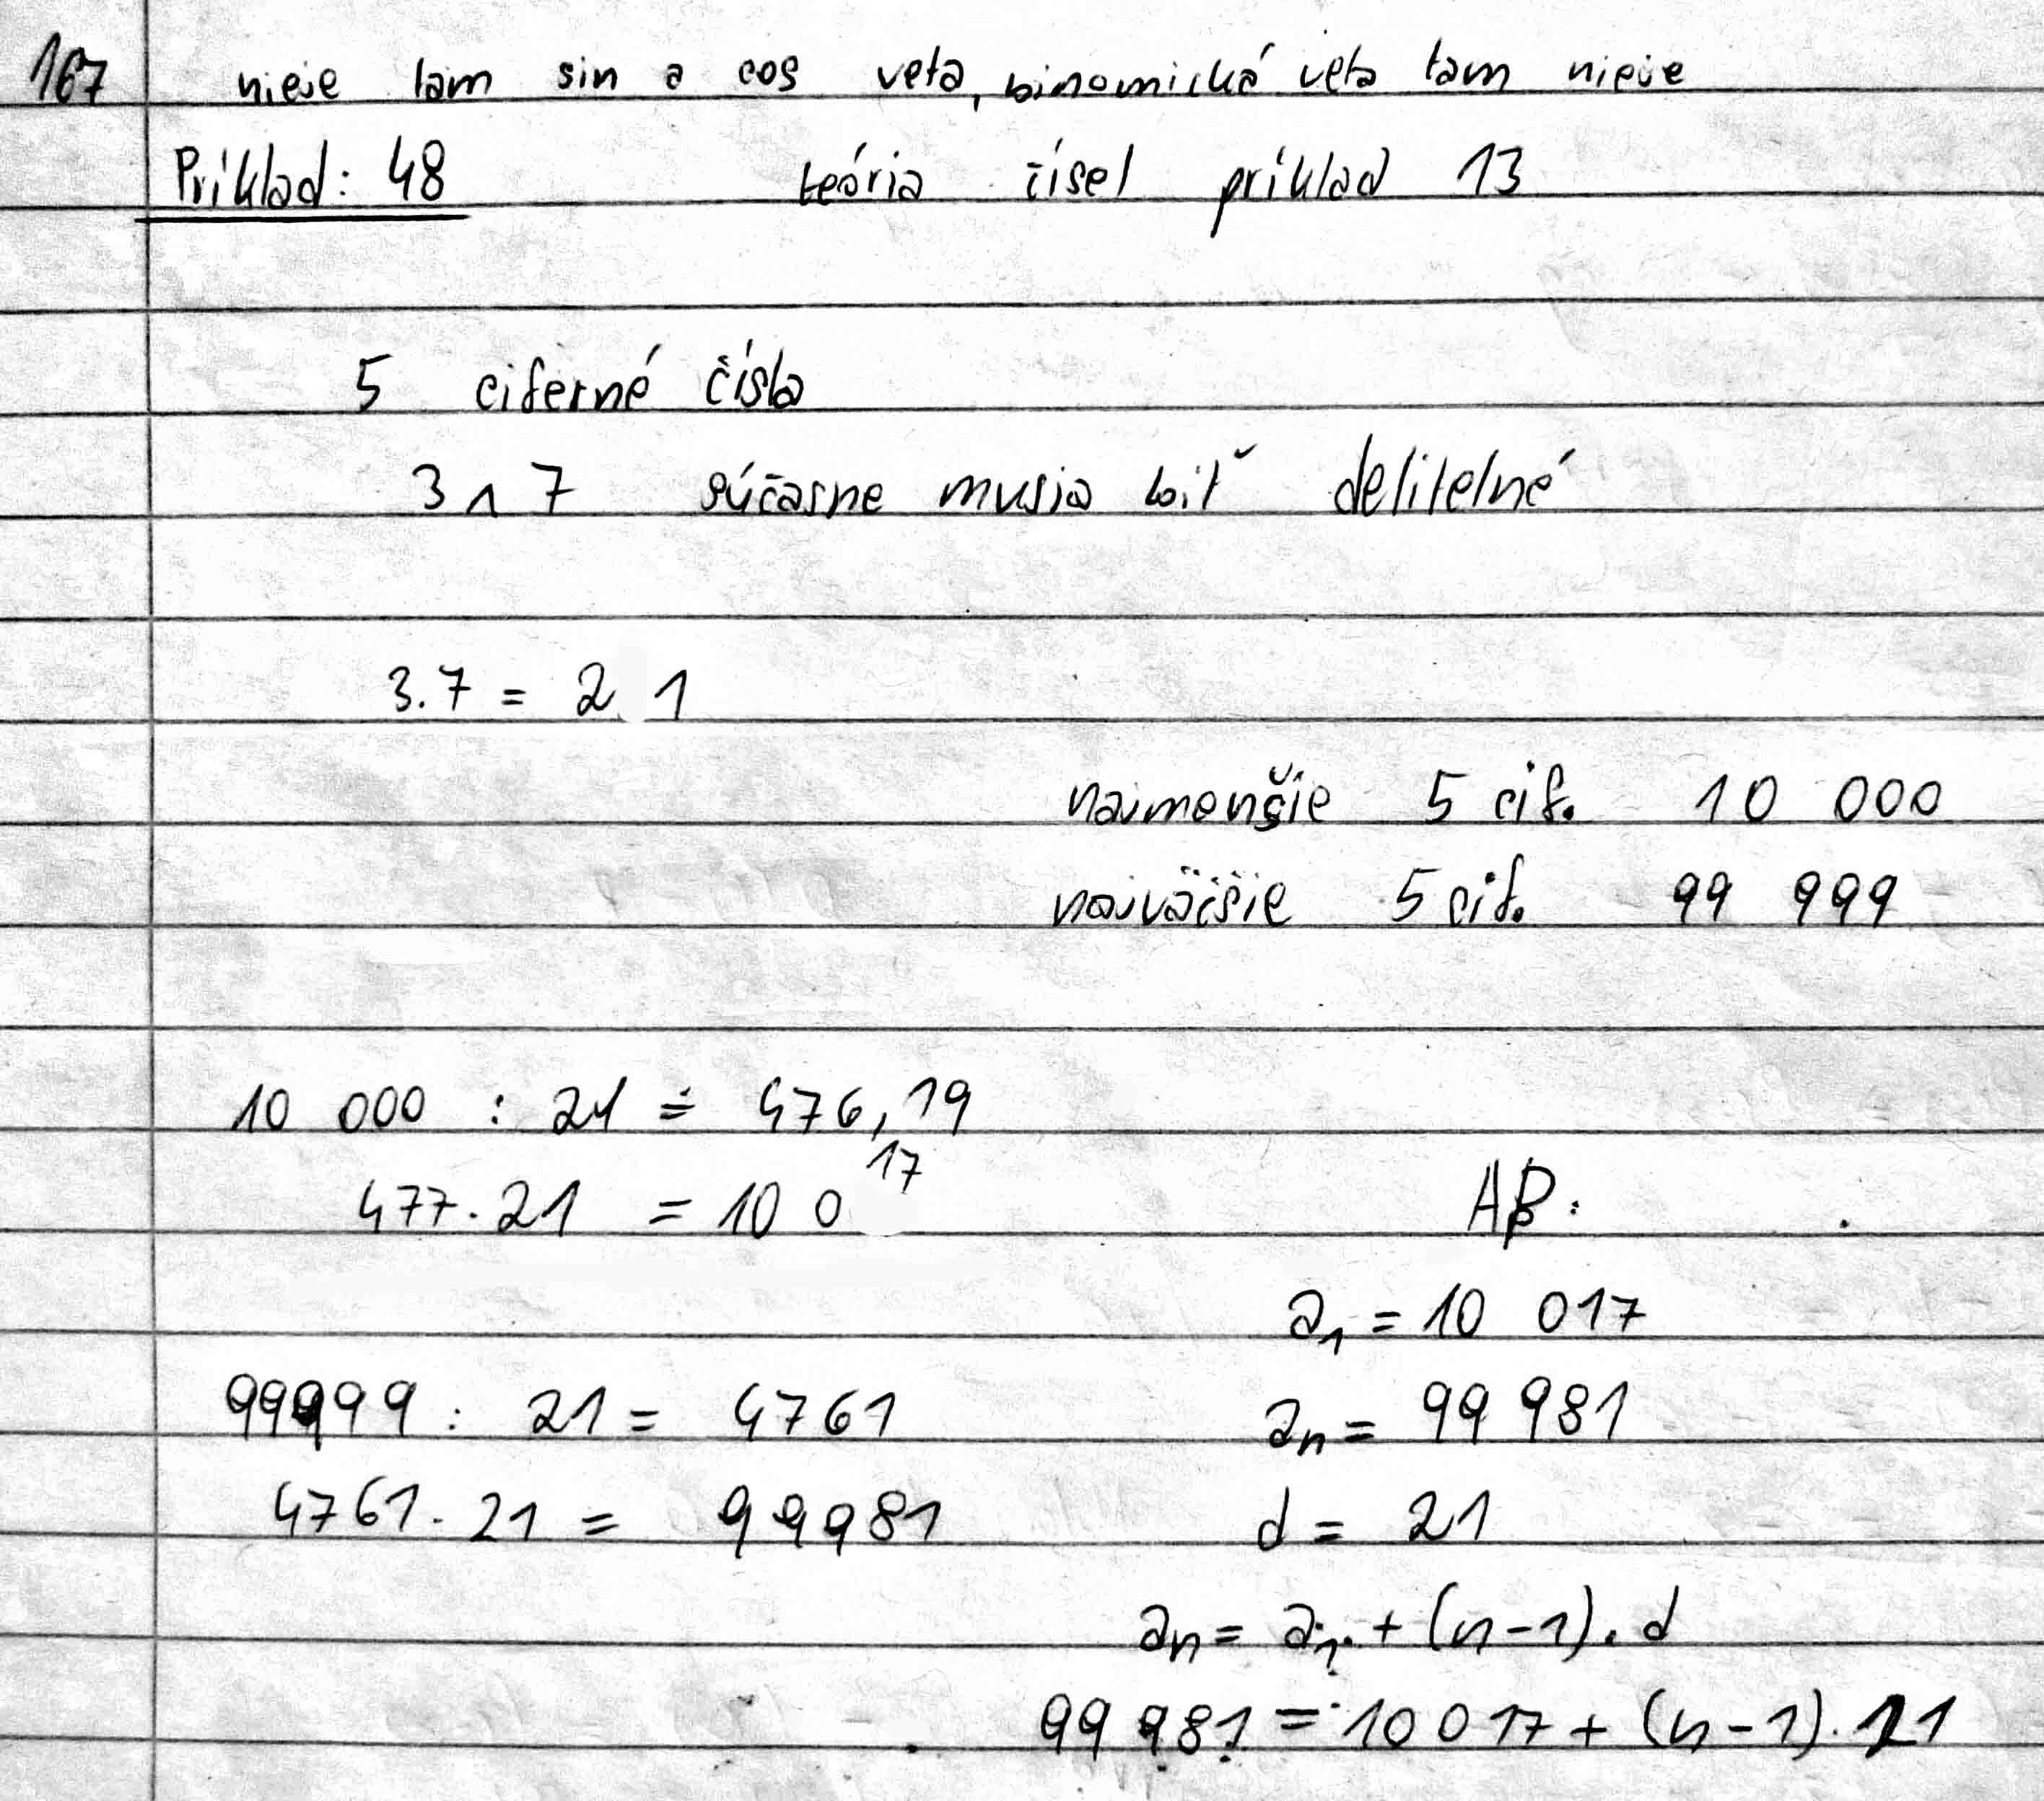 167 nieje tam sin a cos veta, binomická veta tam nieje
Príklad: 48 teória čísel príklad 13
5 ciferné čísla
3 ∧ 7 súčasne musia biť delitelné
3.7 = 21
najmenšie 5 cif. 10 000
najväčšie 5 cif. 99 999
10 000 : 21 ≐ 476,19
477.21 = 10 017
AP:
a₁ = 10 017
99999 : 21 = 4761
aₙ = 99 981
4761.21 = 99981
d = 21
aₙ = a₁ + (n-1).d
99 981 = 10 017 + (n-1).21